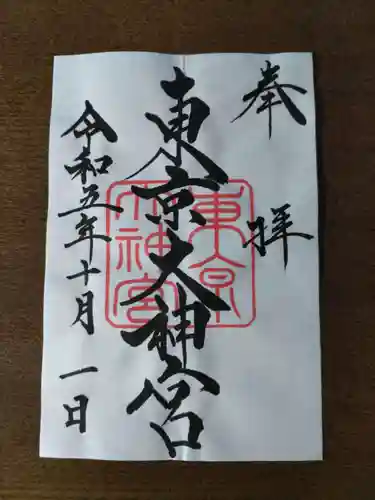 奉拝
東京大神宮
東京大神宮
令和五年十月一日